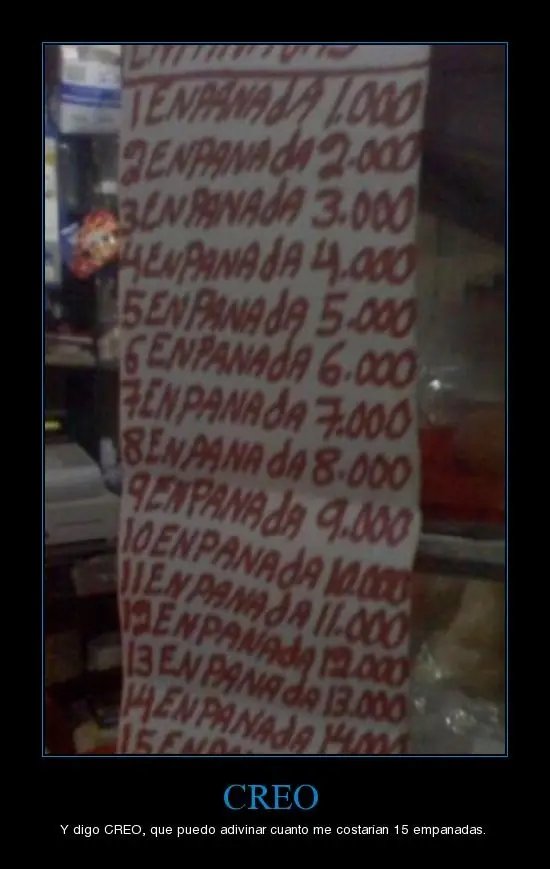 1 ENPANAdA 1.000
2 ENPANAdA 2.000
3 ENPANAdA 3.000
4 ENPANAdA 4.000
5 ENPANAdA 5.000
6 ENPANAdA 6.000
7 ENPANAdA 7.000
8 ENPANAdA 8.000
9 ENPANAdA 9.000
10 ENPANAdA 10.000
11 ENPANAdA 11.000
12 ENPANAdA 12.000
13 ENPANAdA 13.000
14 ENPANAdA 14.000
15
CREO
Y digo CREO, que puedo adivinar cuanto me costarian 15 empanadas.